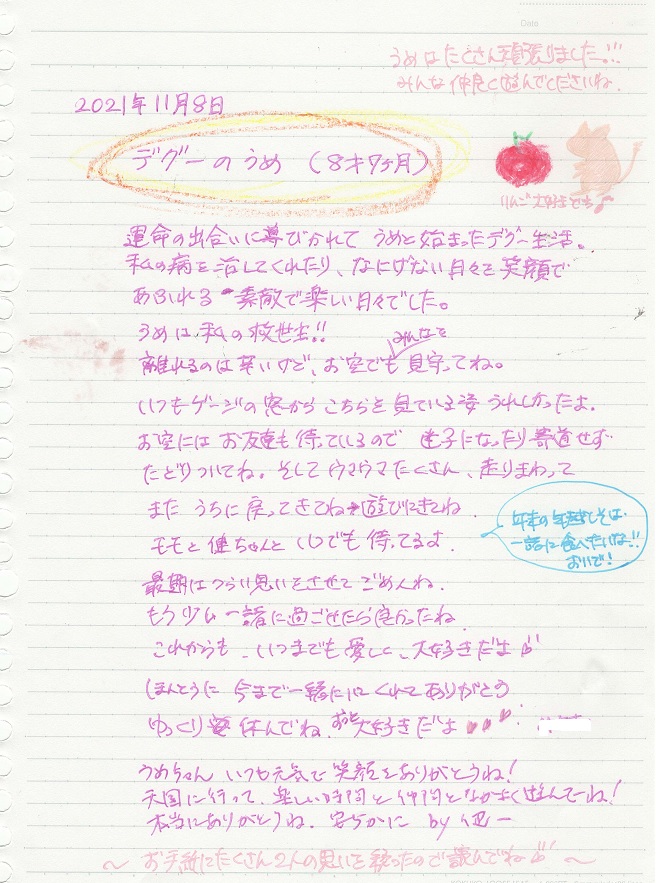 Date
うめはたくさん頑張りました。!!
みんな仲良く遊んでくださいね.
2021年11月8日
デグーのうめ(8才7ヶ月)
りんご大好きです♪
運命の出合いに導びかれて うめと始まったデグー生活。
私の病を治してくれたり、なにげない日々を笑顔で
あふれる 素敵で楽しい日々でした。
うめは私の救世主!!
みんなを
離れるのは辛いけど、お空でも見守ってね。
いつもゲージの窓からこちらを見ている姿 うれしかったよ.
お空にはお友達も待っているので 迷子になったり寄道せず
たどりついてね。そしてウマウマたくさん、走りまわって
また うちに戻ってきてね 遊びにきてね.
年末の年越しそば
一緒に食べたいな!!
おいで!
モモと健ちゃんといつでも待ってるよ.
最期はつらい思いをさせて ごめんね.
もう少し一緒に過ごせたら良かったね.
これからも、いつまでも愛しく、大好きだよ
ほんとうに 今まで一緒にいてくれてありがとう
ゆっくり 休んでね. ずっと大好きだよ
うめちゃん いつも元気で笑顔をありがとうね!
天国に行って、楽しい時間を仲間となかよく遊んでね!
本当にありがとうね. 安らかに by 健一
〜 お手紙にたくさん2人の思いを綴ったので読んでね 〜